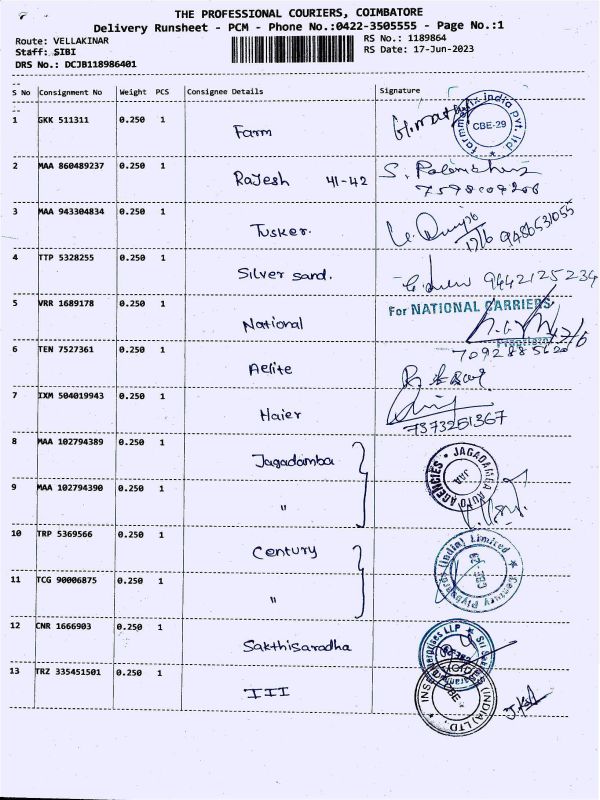 THE PROFESSIONAL COURIERS, COIMBATORE
Delivery Runsheet - PCM - Phone No.:0422-3505555 - Page No.:1
Route: VELLAKINAR RS No.: 1189864
Staff: SIBI RS Date: 17-Jun-2023
DRS No.: DCJB118986401
S No Consignment No Weight PCS Consignee Details Signature
1 GKK 511311 0.250 1 Farm
CBE-29
2 MAA 860489237 0.250 1 Rajesh 41-42
3 MAA 943304834 0.250 1 Tusker. 17/6 9486531055
4 TTP 5328255 0.250 1 Silver sand. 94421 25234
5 VRR 1689178 0.250 1 National
For NATIONAL CARRIERS
6 TEN 7527361 0.250 1 Aelite
7 IXM 504019943 0.250 1 Haier
7373251367
8 MAA 102794389 0.250 1 Jagadamba
JAGADAMBA AUTO AGENCIES
9 MAA 102794390 0.250 1 "
10 TRP 5369566 0.250 1 Century
Century Plyboards (India) Limited
11 TCG 90006875 0.250 1 "
12 CNR 1666903 0.250 1 Sakthisaradha
13 TRZ 335451501 0.250 1 III
(INDIA) LTD
CBE